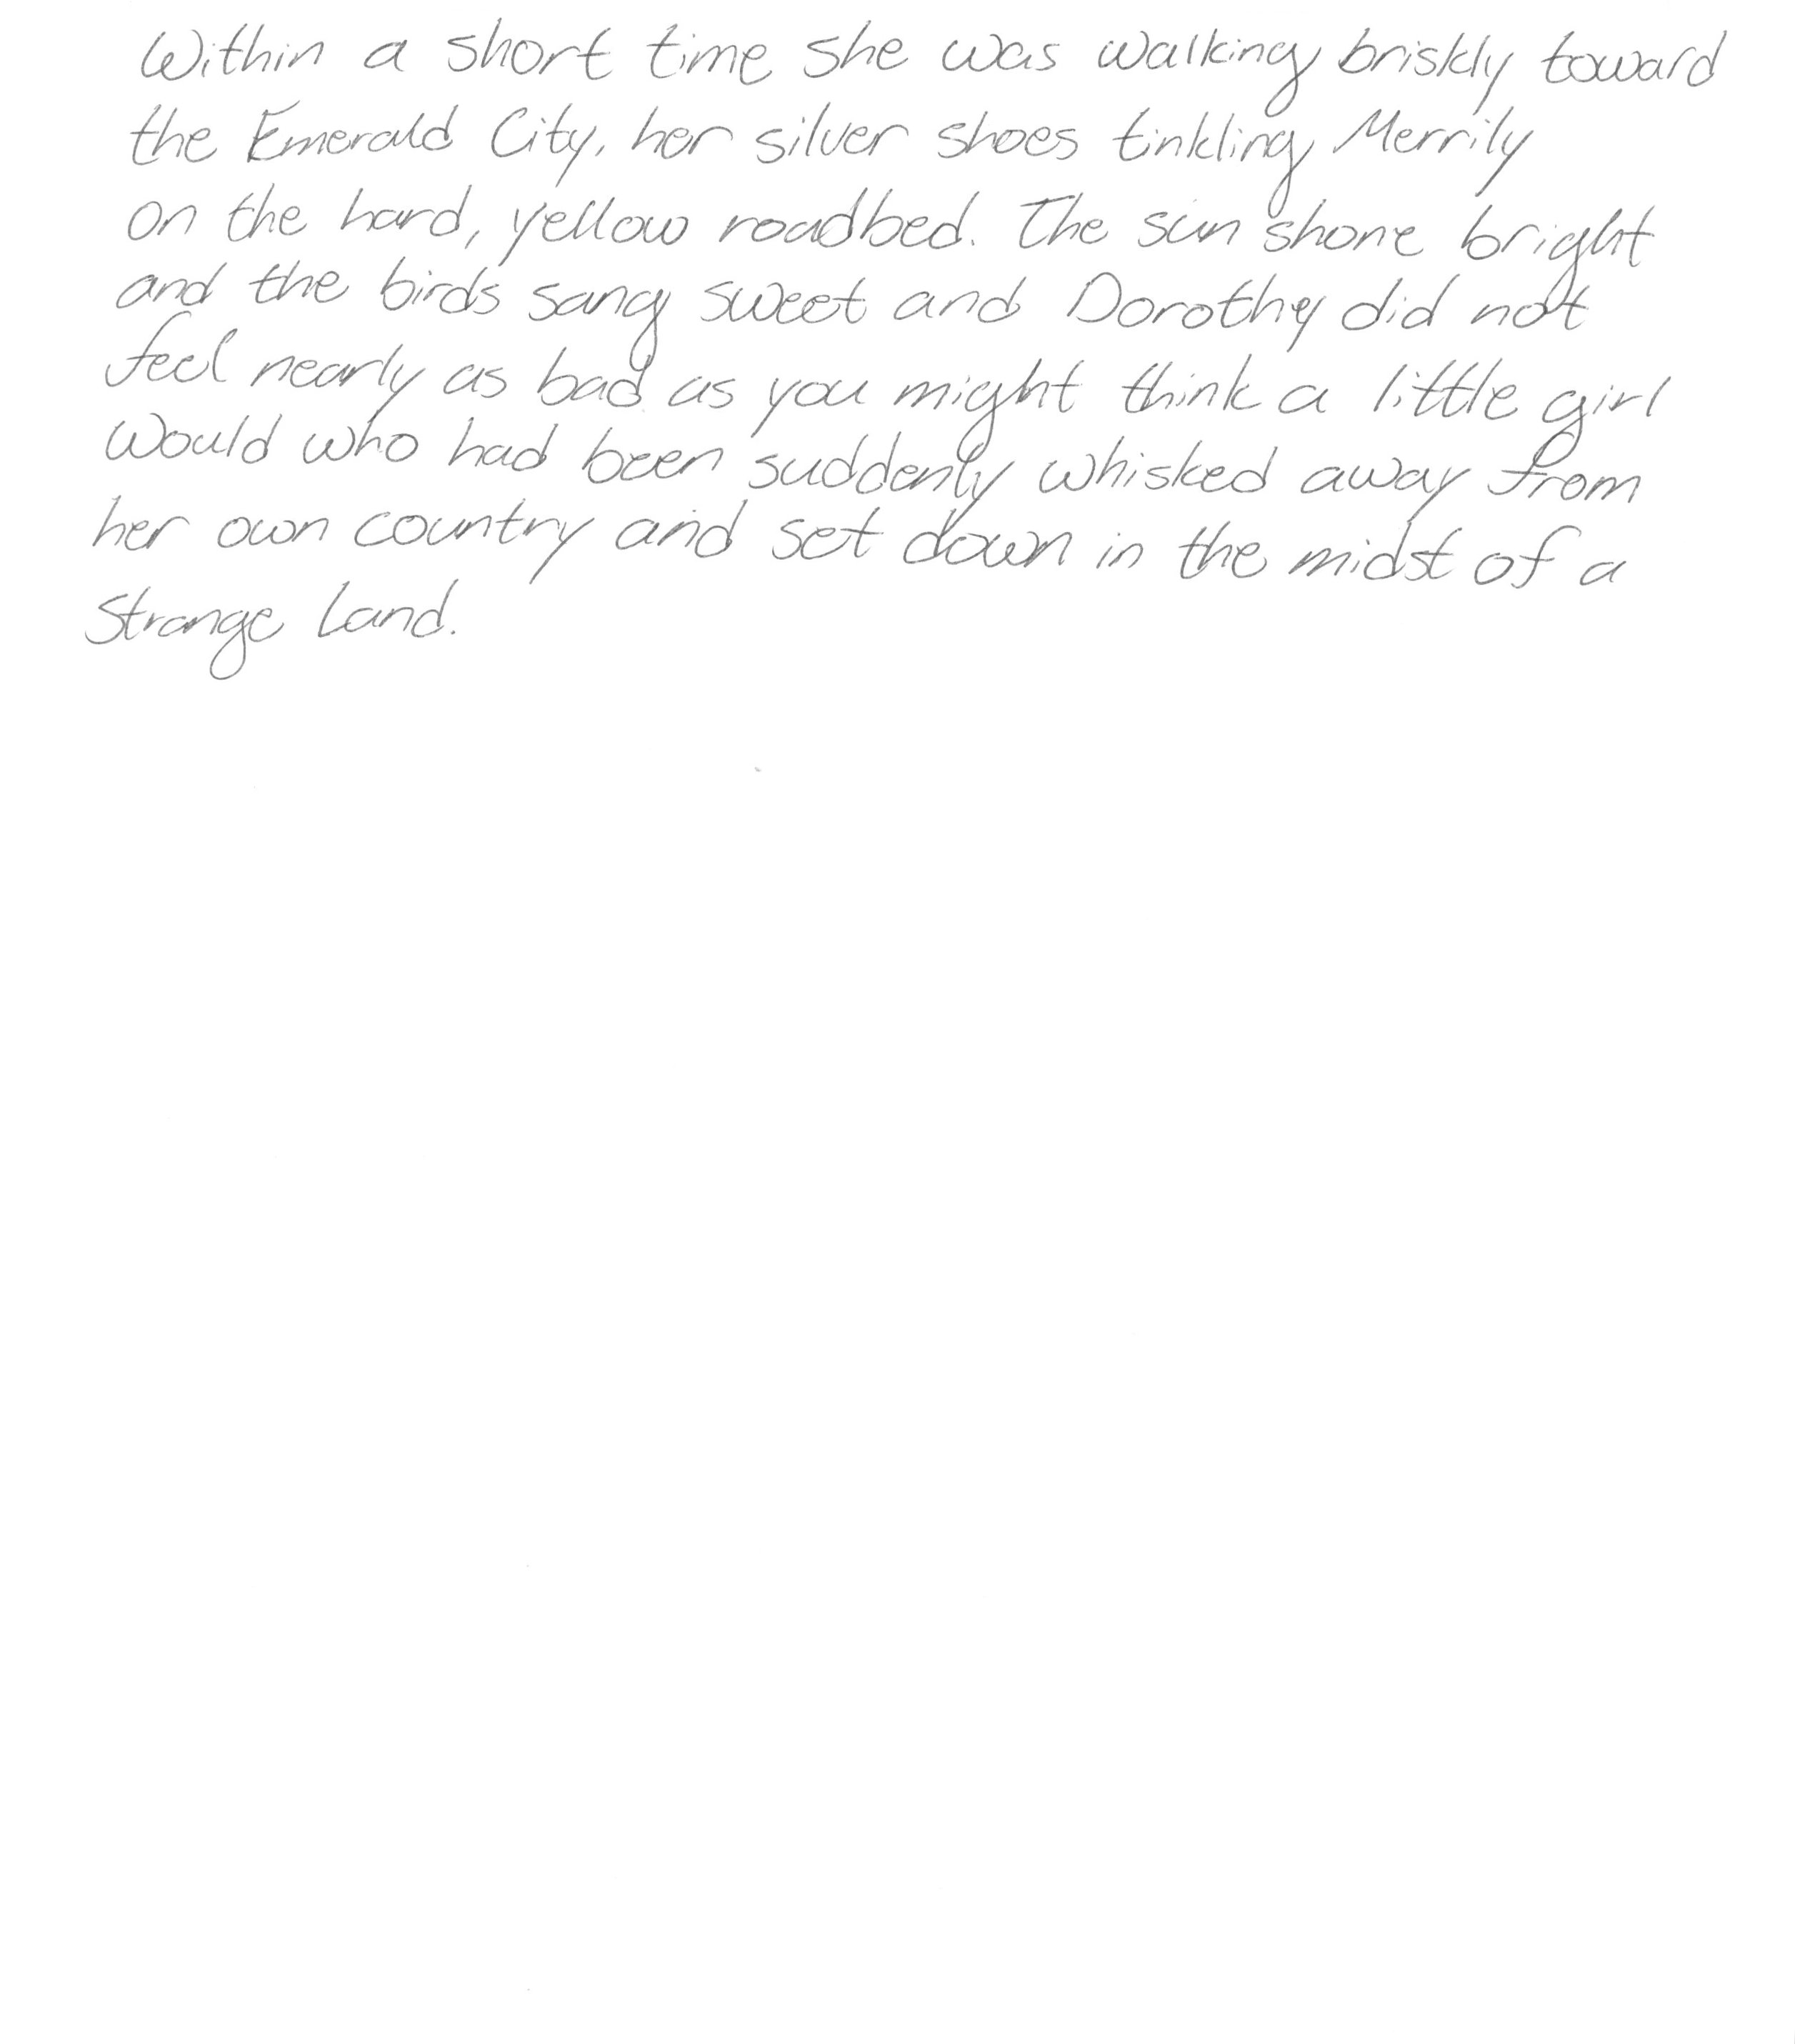 Within a short time she was walking briskly toward
the Emerald City, her silver shoes tinkling Merrily
on the hard, yellow roadbed. The sun shone bright
and the birds sang sweet and Dorothy did not
feel nearly as bad as you might think a little girl
would who had been suddenly whisked away from
her own country and set down in the midst of a
strange land.